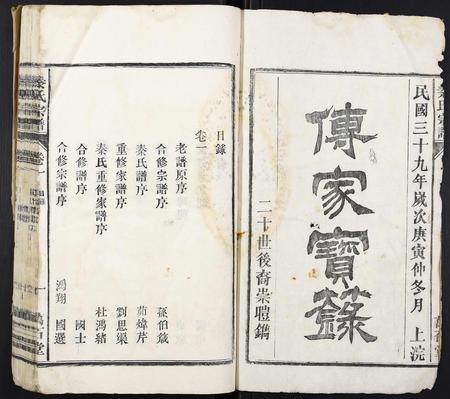 民國三十九年歲次庚寅仲冬月 上浣
傳家寶籙
二十世後裔崇暟鐫
目錄
卷一
老譜原序
合修宗譜序 孫伯箴
秦氏譜序 茹煒芹
重修家譜序 劉思渠
秦氏重修家譜序 杜鴻緒
合修譜序 國士
合修宗譜序 鴻翔 國選
秦氏宗譜
卷一
一